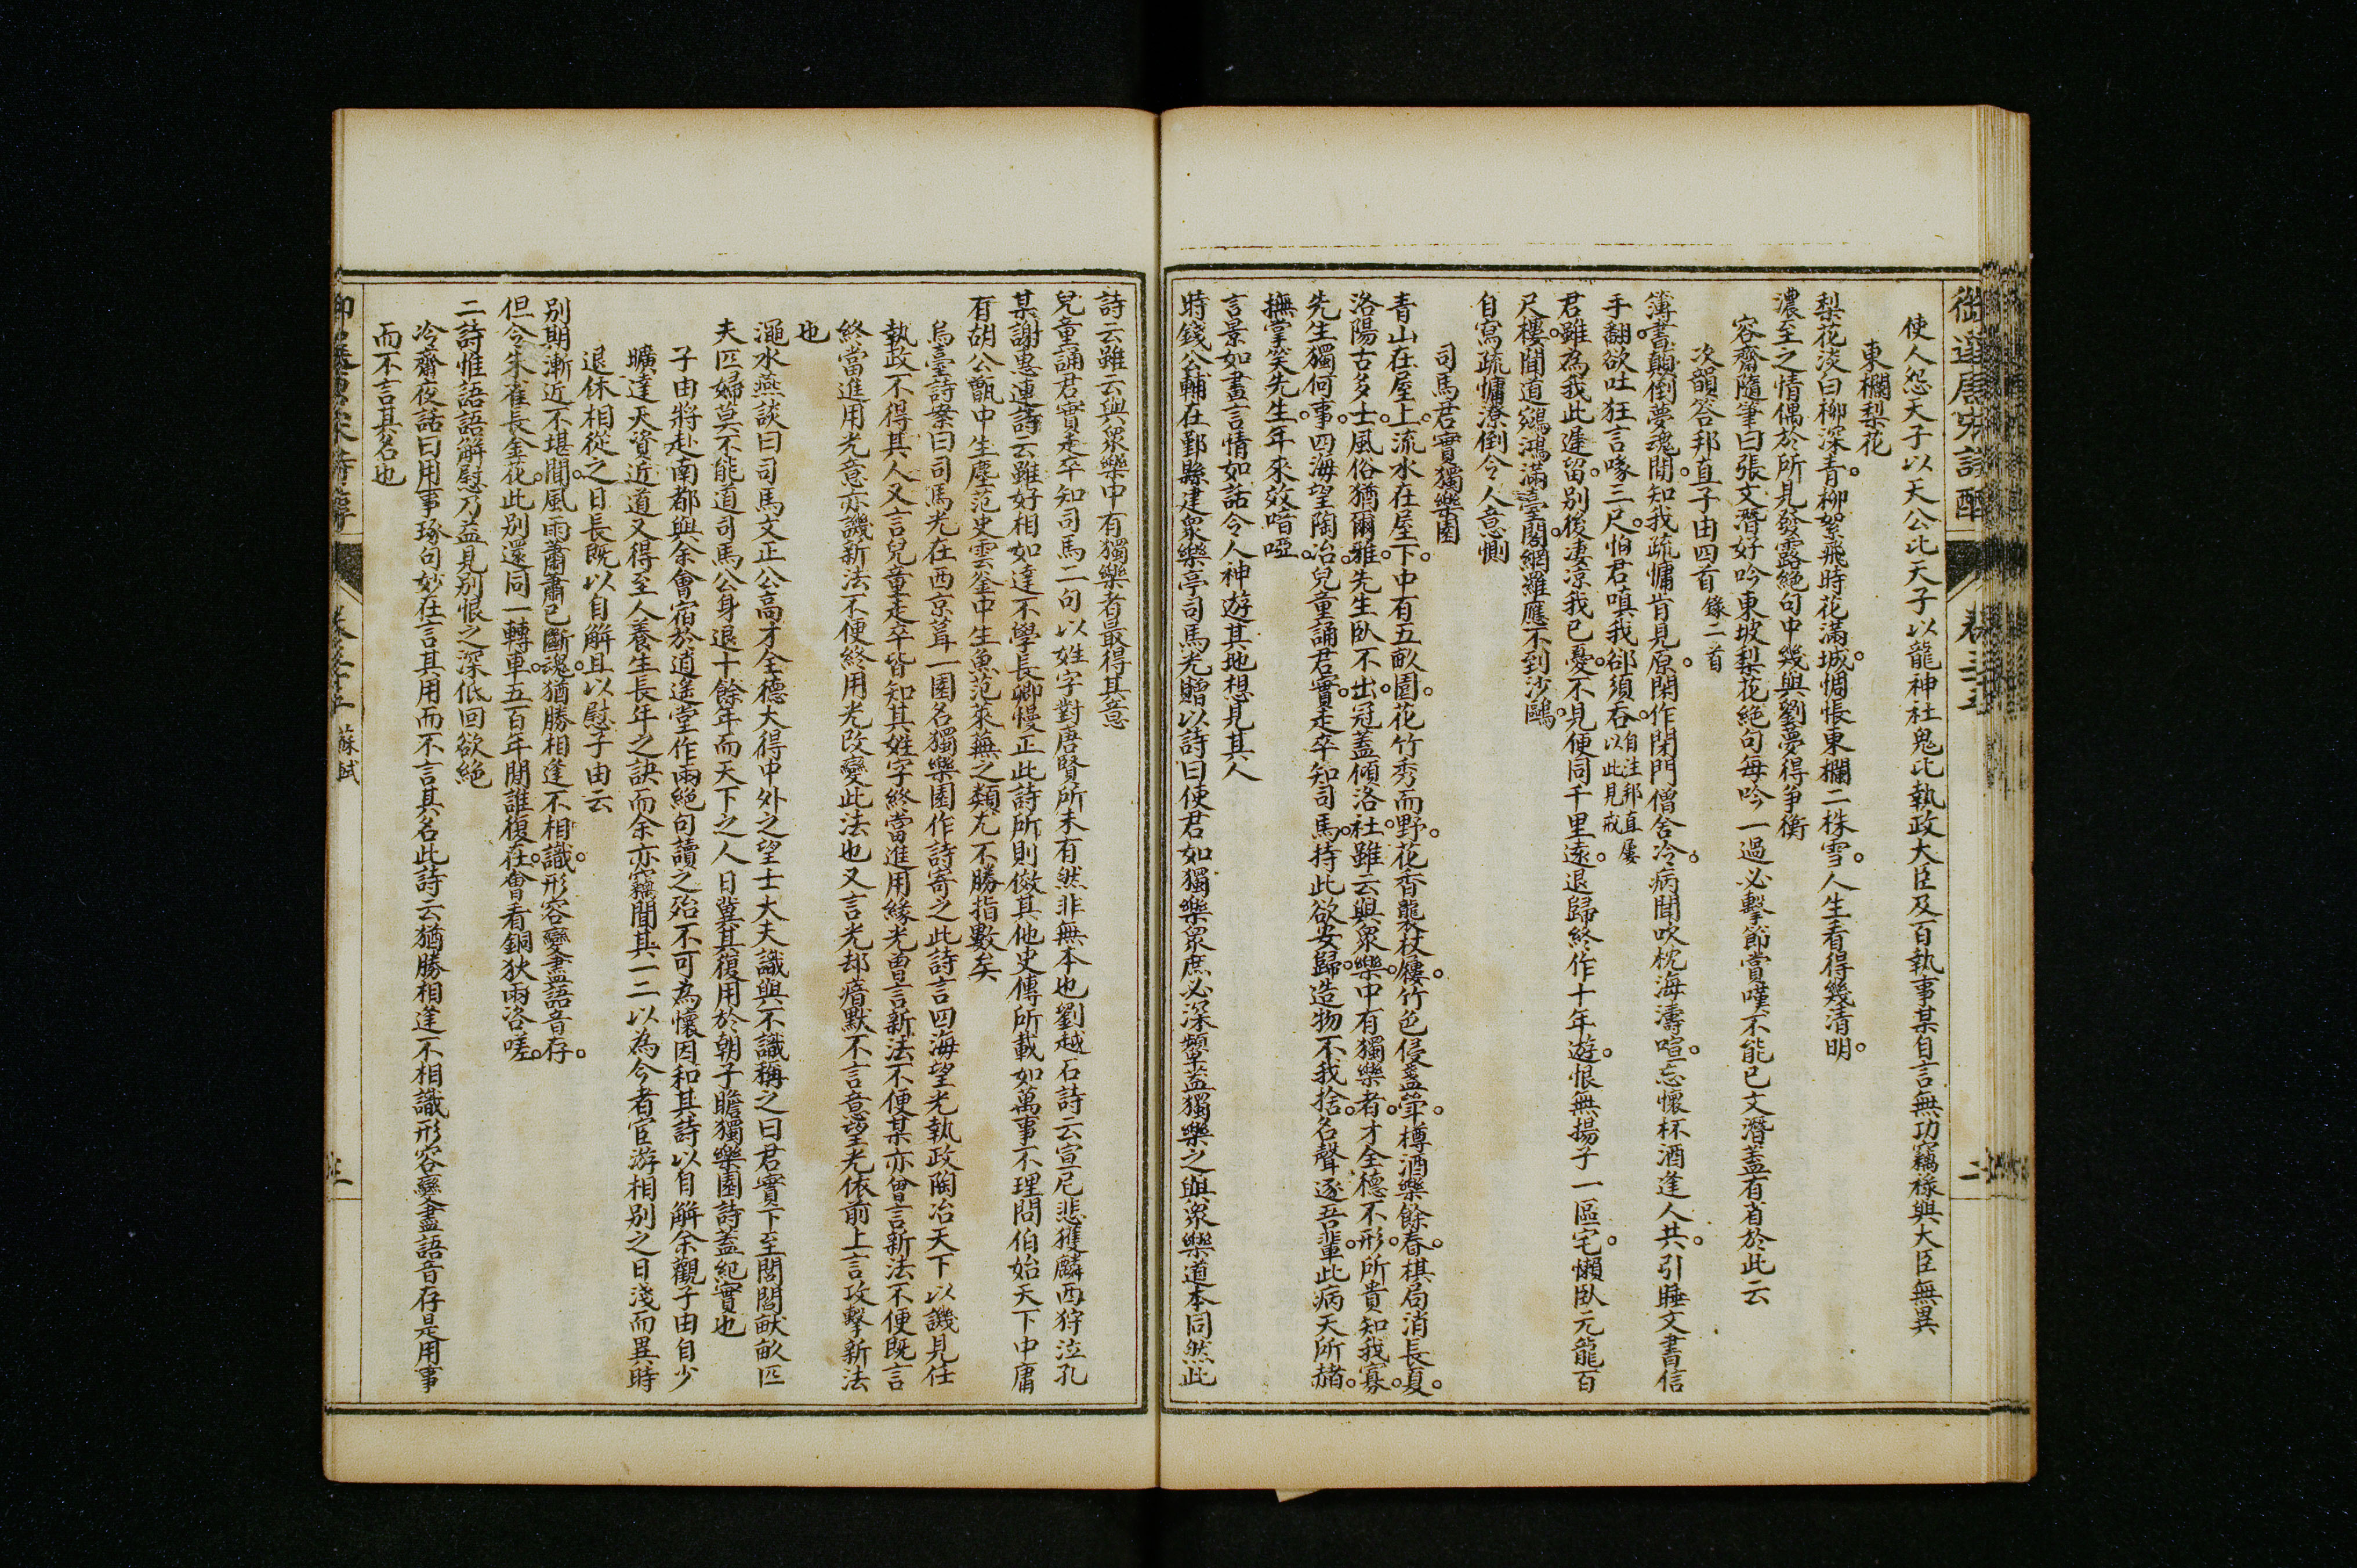 御選唐宋詩醇
卷三十五
二
使人怨天子以天公比天子以龍神社鬼比執政大臣及百執事某自言無功竊祿與大臣無異
東欄梨花
梨花淡白柳深青柳絮飛時花滿城惆悵東欄二株雪人生看得幾清明
濃至之情偶於所見發露絕句中幾與劉夢得爭衡
容齋隨筆曰張文潛好吟東坡梨花絕句每吟一過必擊節賞嘆不能已文潛蓋有省於此云
次韻答邦直子由四首 錄二首
簿書顛倒夢魂間知我疏慵肯見原閑作閉門僧舍冷病聞吹枕海濤喧忘懷杯酒逢人共引睡文書信
手翻欲吐狂言喙三尺怕君嗔我卻須吞 自注邦直屢以此見戒
君雖為我此遲留別後凄涼我已憂不見便同千里遠退歸終作十年遊恨無揚子一區宅懶臥元龍百
尺樓聞道鵷鴻滿臺閣網羅應不到沙鷗
自寫疏慵潦倒令人意惻
司馬君實獨樂園
青山在屋上流水在屋下中有五畝園花竹秀而野花香襲杖屨竹色侵盞斝樽酒樂餘春棋局消長夏
洛陽古多士風俗猶爾雅先生臥不出冠蓋傾洛社雖云與眾樂中有獨樂者才全德不形所貴知我寡
先生獨何事四海望陶冶兒童誦君實走卒知司馬持此欲安歸造物不我捨名聲逐吾輩此病天所赭
撫掌笑先生年來效喑啞
言景如畫言情如話令人神遊其地想見其人
時錢公輔在鄞縣建眾樂亭司馬光贈以詩曰使君如獨樂眾庶必深顰蓋獨樂之與眾樂道本同然此
詩云雖云與眾樂中有獨樂者最得其意
兒童誦君實走卒知司馬二句以姓字對唐賢所未有然非無本也劉越石詩云宣尼悲獲麟西狩泣孔
某謝惠連詩云雖好相如達不學長卿慢正此詩所則倣其他史傳所載如萬事不理問伯始天下中庸
有胡公甑中生塵范史雲釜中生魚范萊蕪之類尤不勝指數矣
烏臺詩案曰司馬光在西京葺一園名獨樂園作詩寄之此詩言四海望光執政陶冶天下以譏見任
執政不得其人又言兒童走卒皆知其姓字終當進用緣光曾言新法不便某亦曾言新法不便既言
終當進用光意亦譏新法不便終用光改變此法也又言光却瘖默不言意望光依前上言攻擊新法
也
澠水燕談曰司馬文正公高才全德大得中外之望士大夫識與不識稱之曰君實下至閭閻畎畝匹
夫匹婦莫不能道司馬公身退十餘年而天下之人日冀其復用於朝子瞻獨樂園詩蓋紀實也
子由將赴南都與余會宿於逍遙堂作兩絕句讀之殆不可為懷因和其詩以自解余觀子由自少
曠達天資近道又得至人養生長年之訣而余亦竊聞其一二以為今者宦游相別之日淺而異時
退休相從之日長既以自解且以慰子由云
別期漸近不堪聞風雨蕭蕭已斷魂猶勝相逢不相識形容變盡語音存
但令朱雀長金花此別還同一轉車五百年間誰復在會看銅狄兩咨嗟
二詩惟語語解慰乃益見別恨之深低回欲絕
冷齋夜話曰用事琢句妙在言其用而不言其名此詩云猶勝相逢不相識形容變盡語音存是用事
而不言其名也
蘇軾